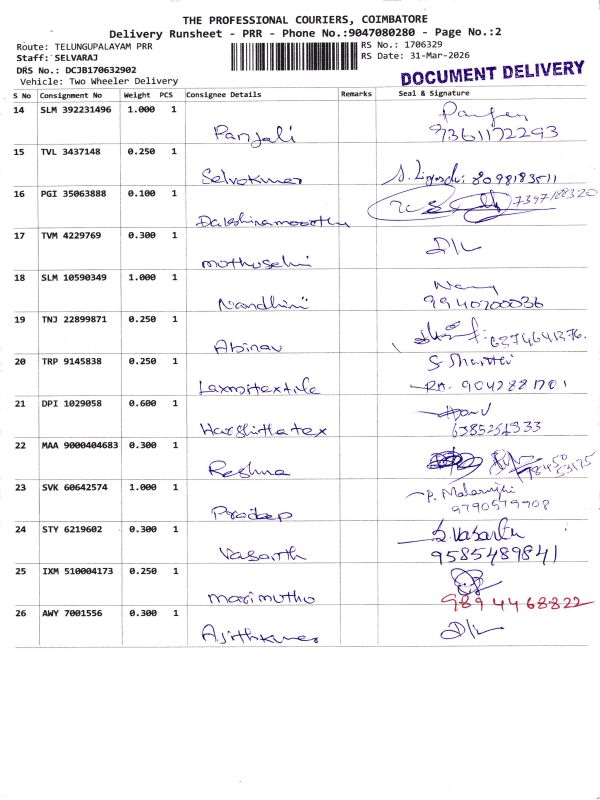 THE PROFESSIONAL COURIERS, COIMBATORE
Delivery Runsheet - PRR - Phone No.:9047080280 - Page No.:2
Route: TELUNGUPALAYAM PRR
RS No.: 1706329
Staff: SELVARAJ
RS Date: 31-Mar-2026
DRS No.: DCJB170632902
Vehicle: Two Wheeler Delivery
DOCUMENT DELIVERY
S No Consignment No Weight PCS Consignee Details Remarks Seal & Signature
14 SLM 392231496 1.000 1
Panjali 9361172293
15 TVL 3437148 0.250 1
Selvakumar 8098183511
16 PGI 35063888 0.100 1
Dakshinamoorthy 7397188320
17 TVM 4229769 0.300 1
muthuselvi D/L
18 SLM 10590349 1.000 1
Nandhini 9940700036
19 TNJ 22899871 0.250 1
Abinav 6374641376
20 TRP 9145838 0.250 1
Laxmitextile 9042881701
21 DPI 1029058 0.600 1
Harshitha tex
22 MAA 9000404683 0.300 1
Reshma
23 SVK 60642574 1.000 1
Pradeep 9790579908
24 STY 6219602 0.300 1
Vasanth 9585489841
25 IXM 510004173 0.250 1
marimuthu 9894468822
26 AWY 7001556 0.300 1
Ajithkumar D/L